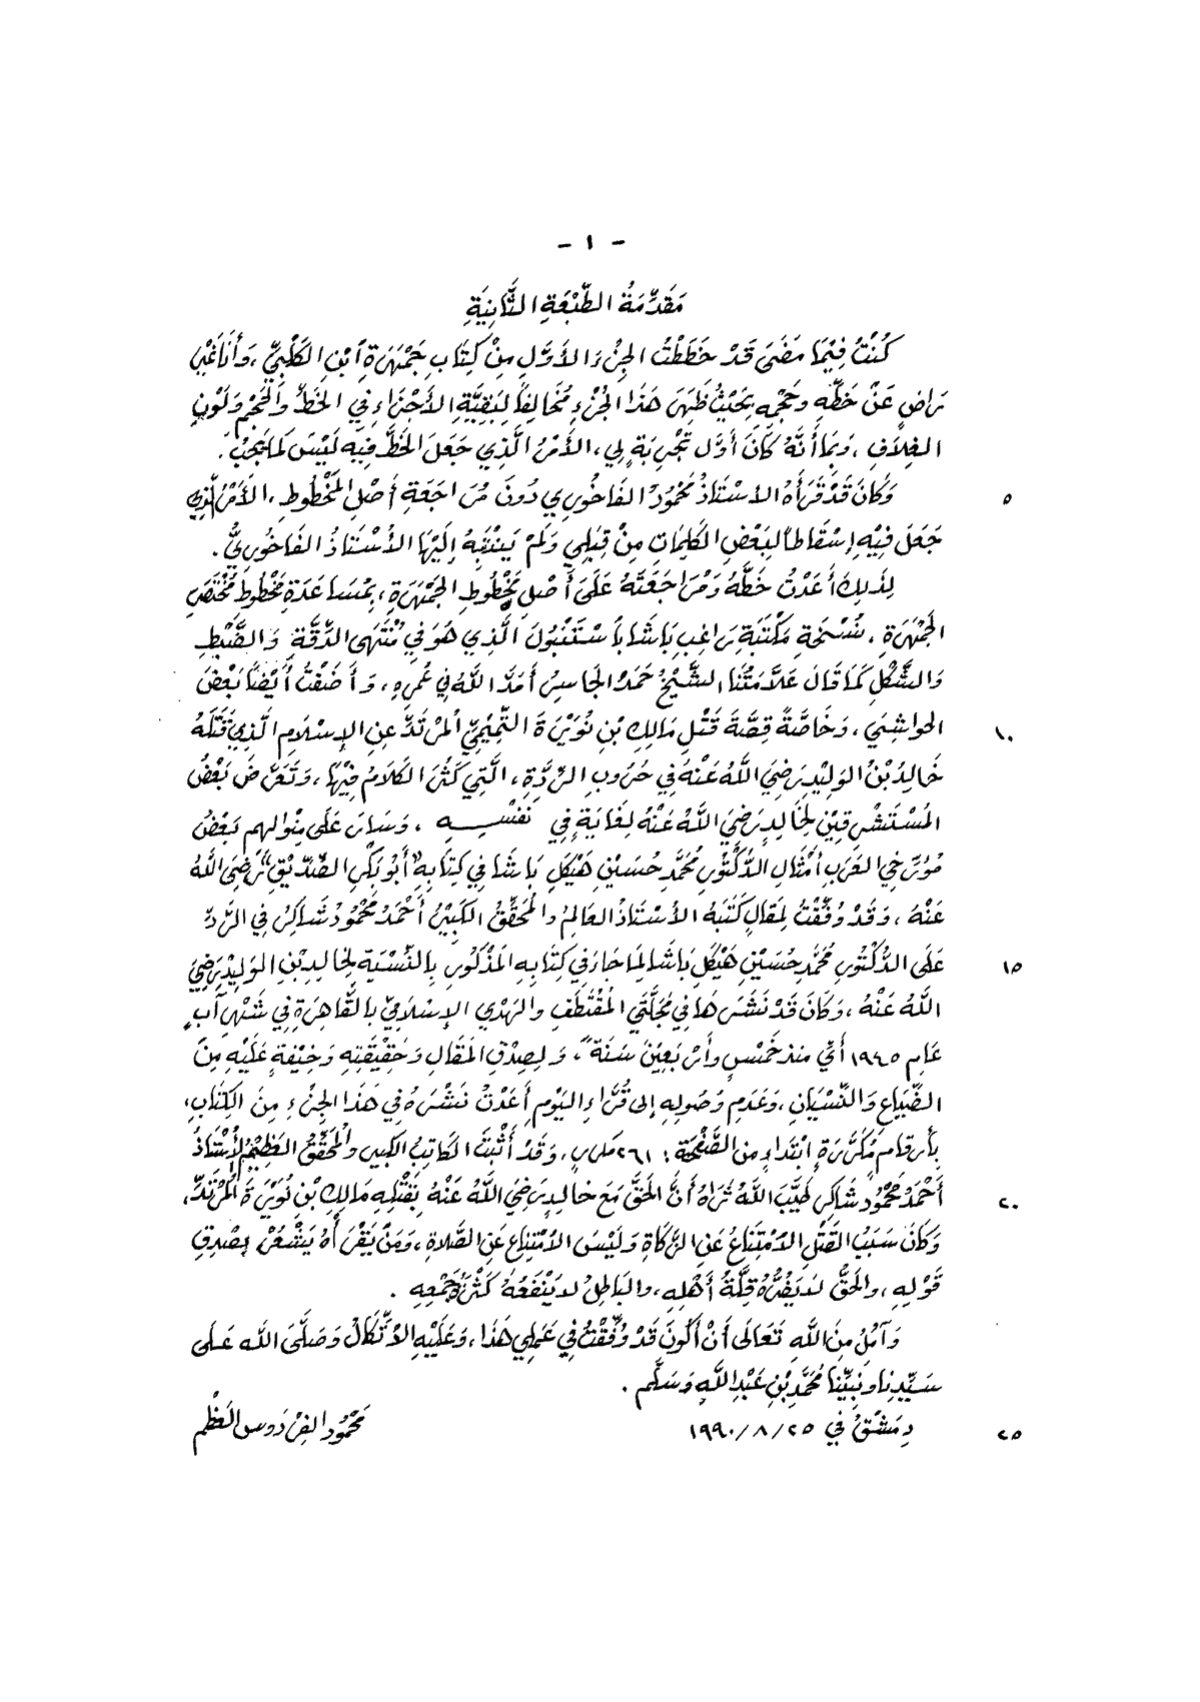 - ١ -
مَقَدِّمَةُ الطَّبْعَةِ الثَّانِيَةِ
كُنْتُ فِيْمَا مَضَى قَدْ خَطَطْتُ الجِزْءَ الأَوَّلِ مِنْ كِتَابِ جَمْهَرَةِ ابْنِ الكَلْبِيِّ، وَأَنَا غَيْرُ
رَاضٍ عَنْ خَطِّهِ وحَجْمِهِ بِحَيْثُ ظَهَرَ هَذَا الجُزْءُ مُخَالِفاً لِبَقِيَّةِ الأَجْزَاءِ فِي الخَطِّ والحَجْمِ وَلَوْنِ
الغِلَافِ، وَبِمَا أَنَّهُ كَانَ أَوَّلَ تَجْرِبَةٍ لِي، الأَمْرُ الَّذِي جَعَلَ الخَطَّ فِيْهِ لَيْسَ كَمَا يَجِبُ.
وَكَانَ قَدْ قَرَأَهُ الأسْتَاذُ مَحْمُودُ الفَاخُورِي دُونَ مُرَاجَعَةِ أَصْلِ المَخْطُوطِ، الأَمْرُ الَّذِي
٥
جَعَلَ فِيْهِ إِسْقَاطاً لِبَعْضِ الكَلِمَاتِ مِنْ قِبَلِي وَلَمْ يَنْتَبِهْ إِلَيْهَا الأُسْتَاذُ الفَاخُورِيُّ.
لِذَلِكَ أَعَدْتُ خَطَّهُ وَمُرَاجَعَتَهُ عَلَى أَصْلِ مَخْطُوطِ الجَمْهَرَةِ، بِمُسَاعَدَةِ مَخْطُوطِ مُخْتَصَرِ
الجَمْهَرَةِ، نُسْخَةِ مَكْتَبَةِ رَاغِبِ بَاشَا بِاسْتَنْبُولَ الَّذِي هُوَ فِي مُنْتَهَى الدِّقَّةِ وَالضَّبْطِ
وَالشَّكْلِ كَمَا قَالَ عَلَّامَتُنَا الشَّيْخُ حَمَدُ الجَاسِرُ أَمَدَّ اللَّهُ فِي عُمِرِهِ، وَأَضَفْتُ أَيْضاً بَعْضَ
الحَواشِي، وَخَاصَّةً قِصَّةَ قَتْلِ مَالِكِ بْنِ نُوَيْرَةَ التَّمِيْمِيِّ المُرْتَدِّ عَنِ الإِسْلَامِ الَّذِي قَتَلَهُ
١٠
خَالِدُ بْنُ الوَلِيْدِ رَضِيَ اللَّهُ عَنْهُ فِي حُرُوبِ الرِّدَّةِ، الَّتِي كَثُرَ الكَلَامُ فِيْهَا، وَتَعَرَّضَ بَعْضُ
المُسْتَشْرِقِيْنَ لِخَالِدٍ رَضِيَ اللَّهُ عَنْهُ لِغَايَةٍ فِي نَفْسِـهِ، وَسَارَ عَلَى مِنْوالِهِم بَعْضُ
مُؤَرِّخِي العَرَبِ أَمْثَالِ الدُّكْتُورِ مُحَمَّدِ حُسَيْنِ هَيْكَلِ بَاشَا فِي كِتَابِهِ "أَبُو بَكْرٍ الصِّدِّيْقِ" رَضِيَ اللَّهُ
عَنْهُ، وَقَدْ وُفِّقْتُ لِمَقَالٍ كَتَبَهُ الأسْتَاذُ العَالِمُ والمُحَقِّقُ الكَبِيْرُ أَحْمَدُ مَحْمُودُ شَاكِرُ فِي الرَّدِّ
عَلَى الدُّكْتُورِ مُحَمَّدِ حُسَيْنِ هَيْكَلِ بَاشَا لِمَا جَاءَ فِي كِتَابِهِ المَذْكُورِ بِالنِّسْبَةِ لِخَالِدِ بْنِ الوَلِيْدِ رَضِيَ
١٥
اللَّهُ عَنْهُ، وَكَانَ قَدْ نَشَرَهَا فِي مَجَلَّتَيِ المُقْتَطَفِ والهَدْيِ الإِسْلَامِيِّ بِالقَاهِرَةِ فِي شَهْرِ آبٍ
عَامِ ١٩٤٥ أَيْ مِنذ خَمْسٍ وأَرْبَعِيْنَ سَنَةً، وَلِصِدْقِ المَقَالِ وَحَقِيْقَتِهِ وَخِيْفَةٍ عَلَيْهِ مِنَ
الضَّيَاعِ وَالنِّسْيَانِ، وَعَدَمِ وَصُولِهِ إلى قُرَّاءِ اليَوْمِ أَعَدْتُ نَشْرَهُ فِي هَذَا الجُزْءِ مِنَ الكِتَابِ،
بِأَرقَامٍ مُكَرَّرَةٍ ابْتِدَاءً مِنَ الصَّفْحَةِ: ٢٦١ مكرر، وَقَدْ أَثْبَتَ الكَاتِبُ الكَبِيْرُ والمُحَقِّقُ العَظِيْمُ الأُسْتَاذُ
أَحْمَدُ مَحْمُودُ شَاكِرِ طَيَّبَ اللَّهُ ثَرَاهُ أَنَّ الحَقَّ مَعَ خَالِدٍ رَضِيَ اللَّهُ عَنْهُ بِقَتْلِهِ مَالِكِ بْنِ نُوَيْرَةَ المُرْتَدِّ،
٢٠
وَكَانَ سَبَبُ القَتْلِ الامْتِنَاعُ عَنِ الزَّكَاةِ وَلَيْسَ الامْتِنِاعَ عَنِ الصَّلَاةِ، وَمَنْ يَقْرَأْهُ يَشْعُرْ بِصْدقِ
قَوْلِهِ، والحَقُّ لَا يَضُرُّهُ قِلَّةُ أَهْلِهِ، والبَاطِلُ لا يَنْفَعُهُ كَثْرَةُ جَمْعِهِ.
وَآمُلُ مِنَ اللَّهِ تَعَالَى أَنْ أَكُونَ قَدْ وُفِّقْتُ فِي عَمَلِي هَذَا، وَعَلَيْهِ الاتِّكَالُ وَصَلَّى اللَّه عَلَى
سَيِّدِنَا وَنَبِيِّنَا مُحَمَّدِ بْنِ عَبْدِ اللَّهِ وَسَلَّم.
دِمَشْقُ فِي ٢٥/٨/١٩٩٠ مَحْمُود الفِرْدَوس العَظْم
٢٥